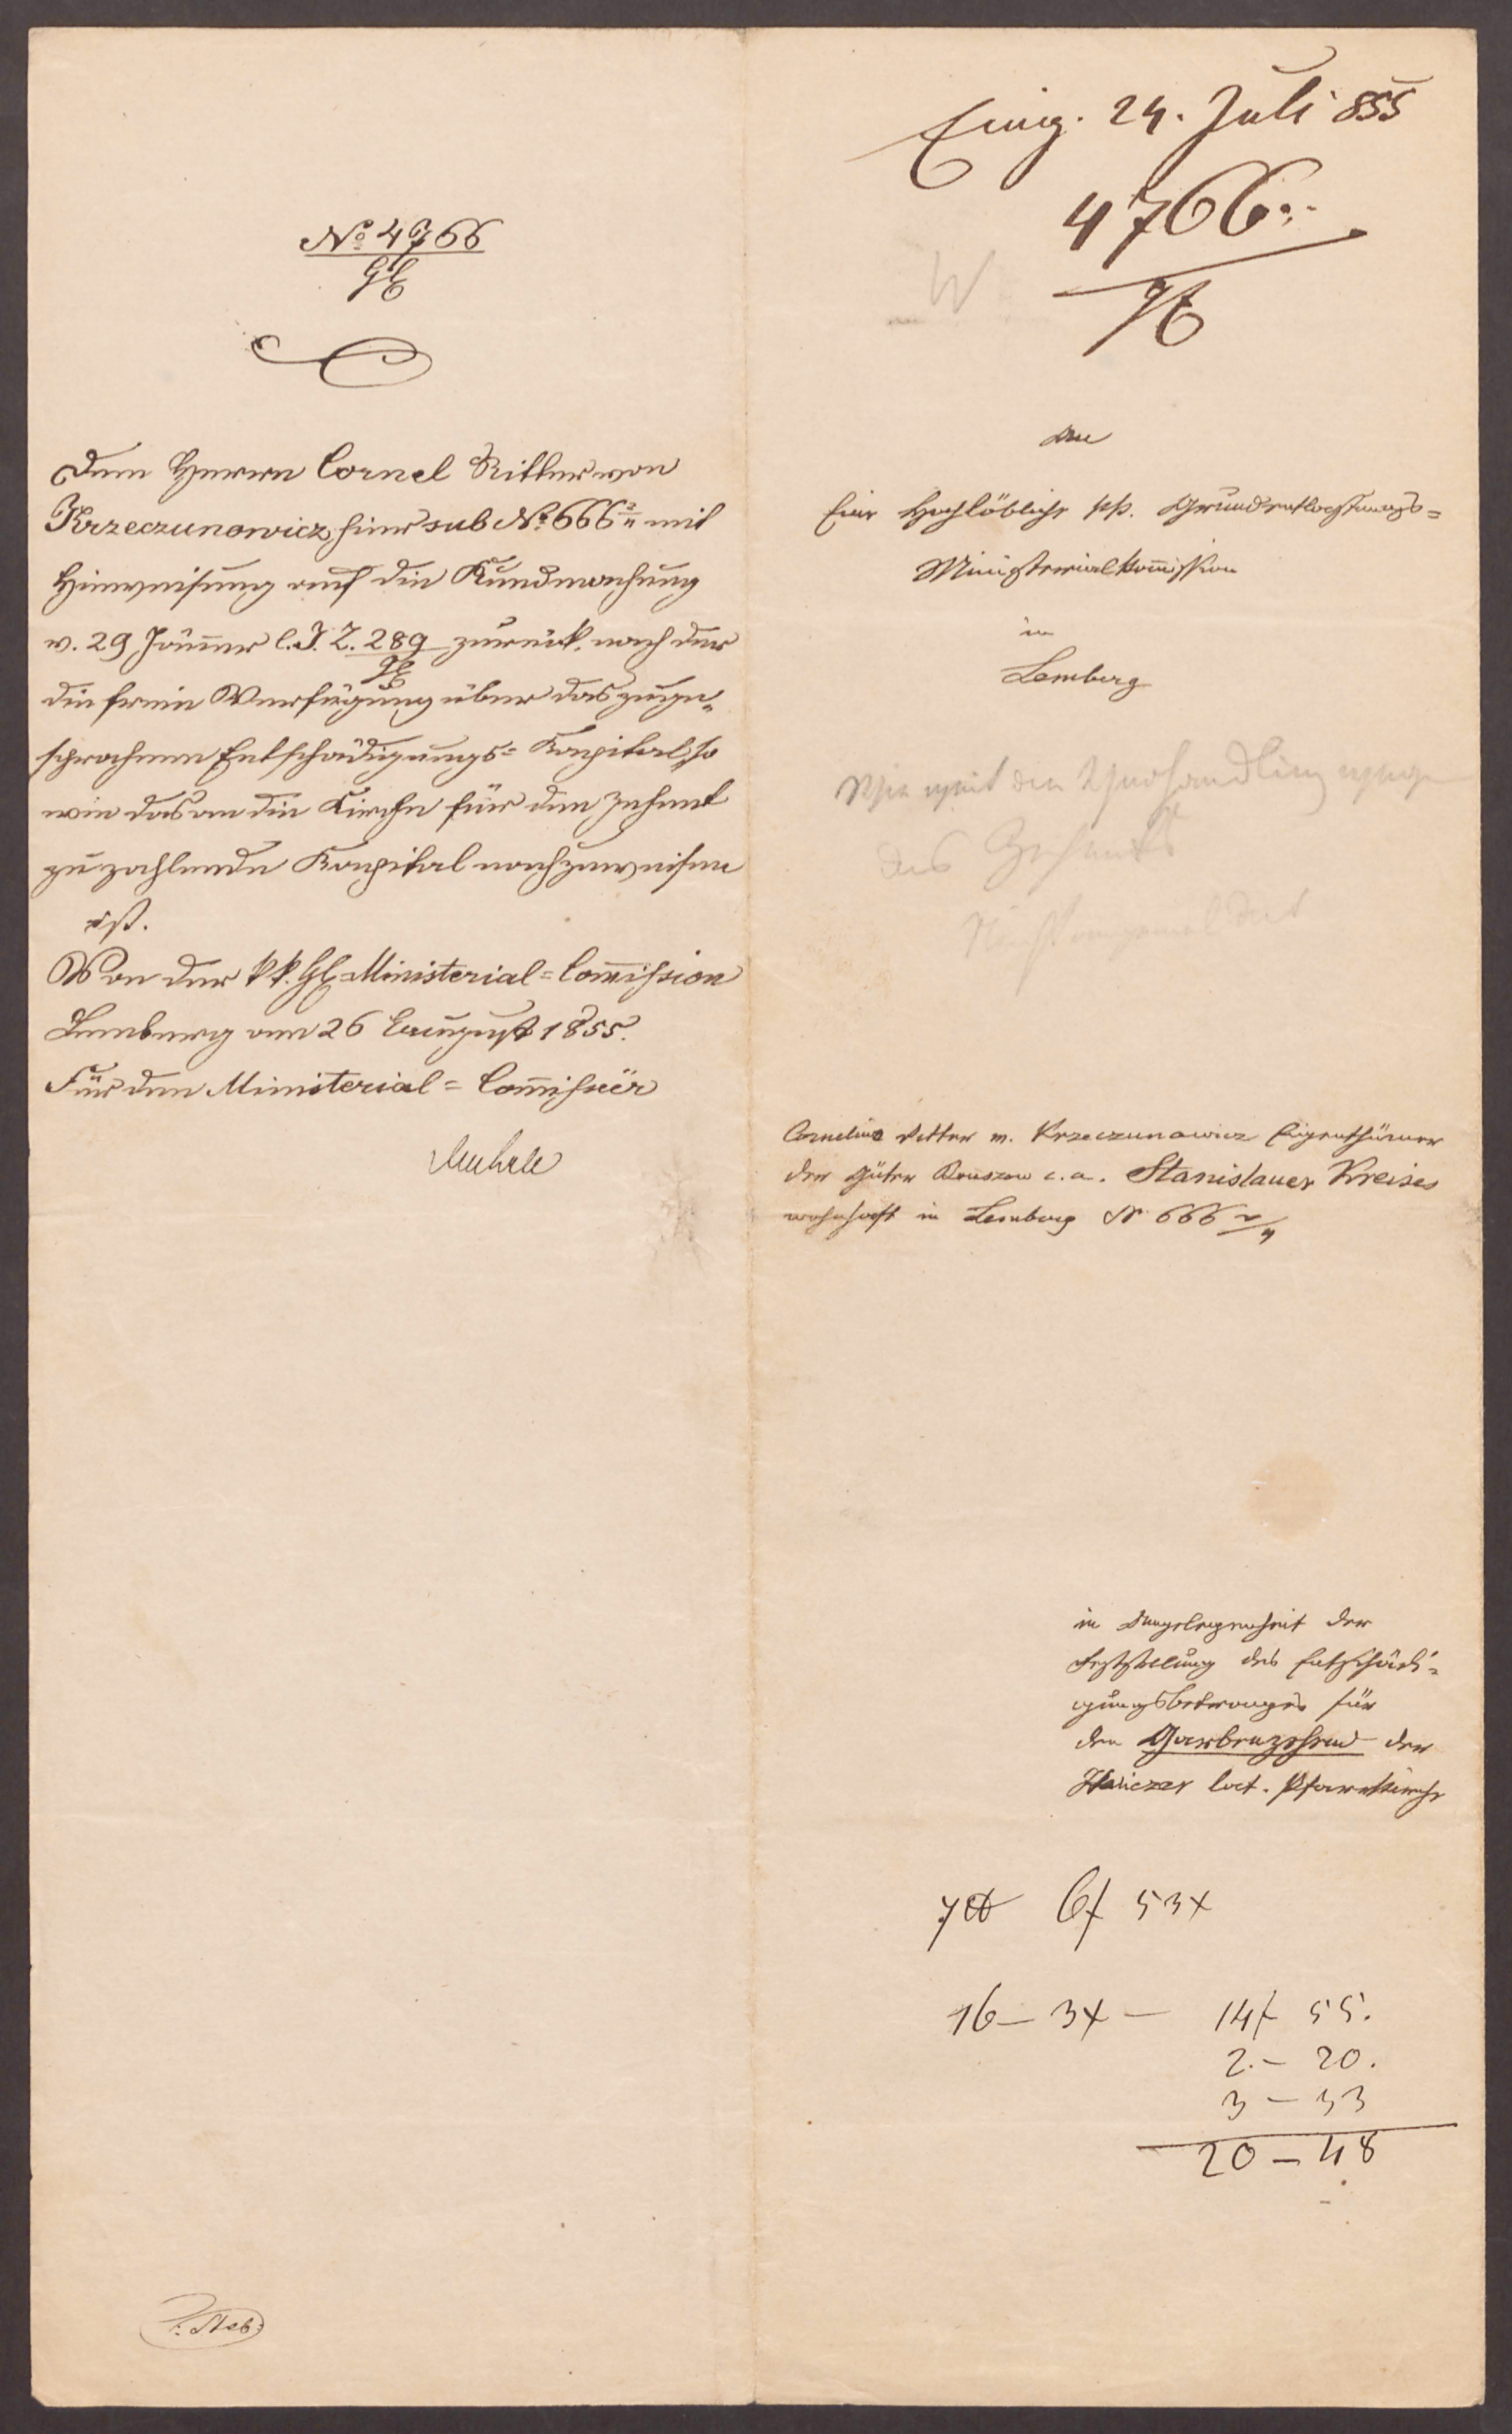 No 4766
GE
Dem Herrn Cornel Ritter von
Krzeczunowicz, hier sub No 666 2/4 mit
Hinweisung auf die Kundmachung
v. 29 Jänner l. J. Z. 289 zurück, nach der
GE
die freie Verfügung über das zuge=
sprochene Entschädigungs= Kapital, so
wie das an die Kirche für den Zehent
zu zahlende Kapital nachzuweisen
ist.
Von der k. k. GE Ministerial= Com̅ission
Lemberg am 26 August 1855.
Für den Ministerial= Com̅issär
Eing. 24. Juli 855
4766
GE
W
An
Eine Hochlöbliche kk. Grundentlastungs=
Ministerialkom̅ission
in
Lemberg
mit der Verhandlung wegen
des Zehents
Cornelius Ritter v. Krzeczunowicz Eigenthümer
der Güter c. a. Stanislauer Kreises
wohnhaft in Lemberg N 666 2/4
in Angelegenheit der
Feststellung des Entschädi=
gungsbetrages für
den Garbenzehend der
Haliczer lat. Pfarrkirche
7 6f 53x
16 — 3x — 14f 55.
2. — 20.
3 — 33
20 — 48